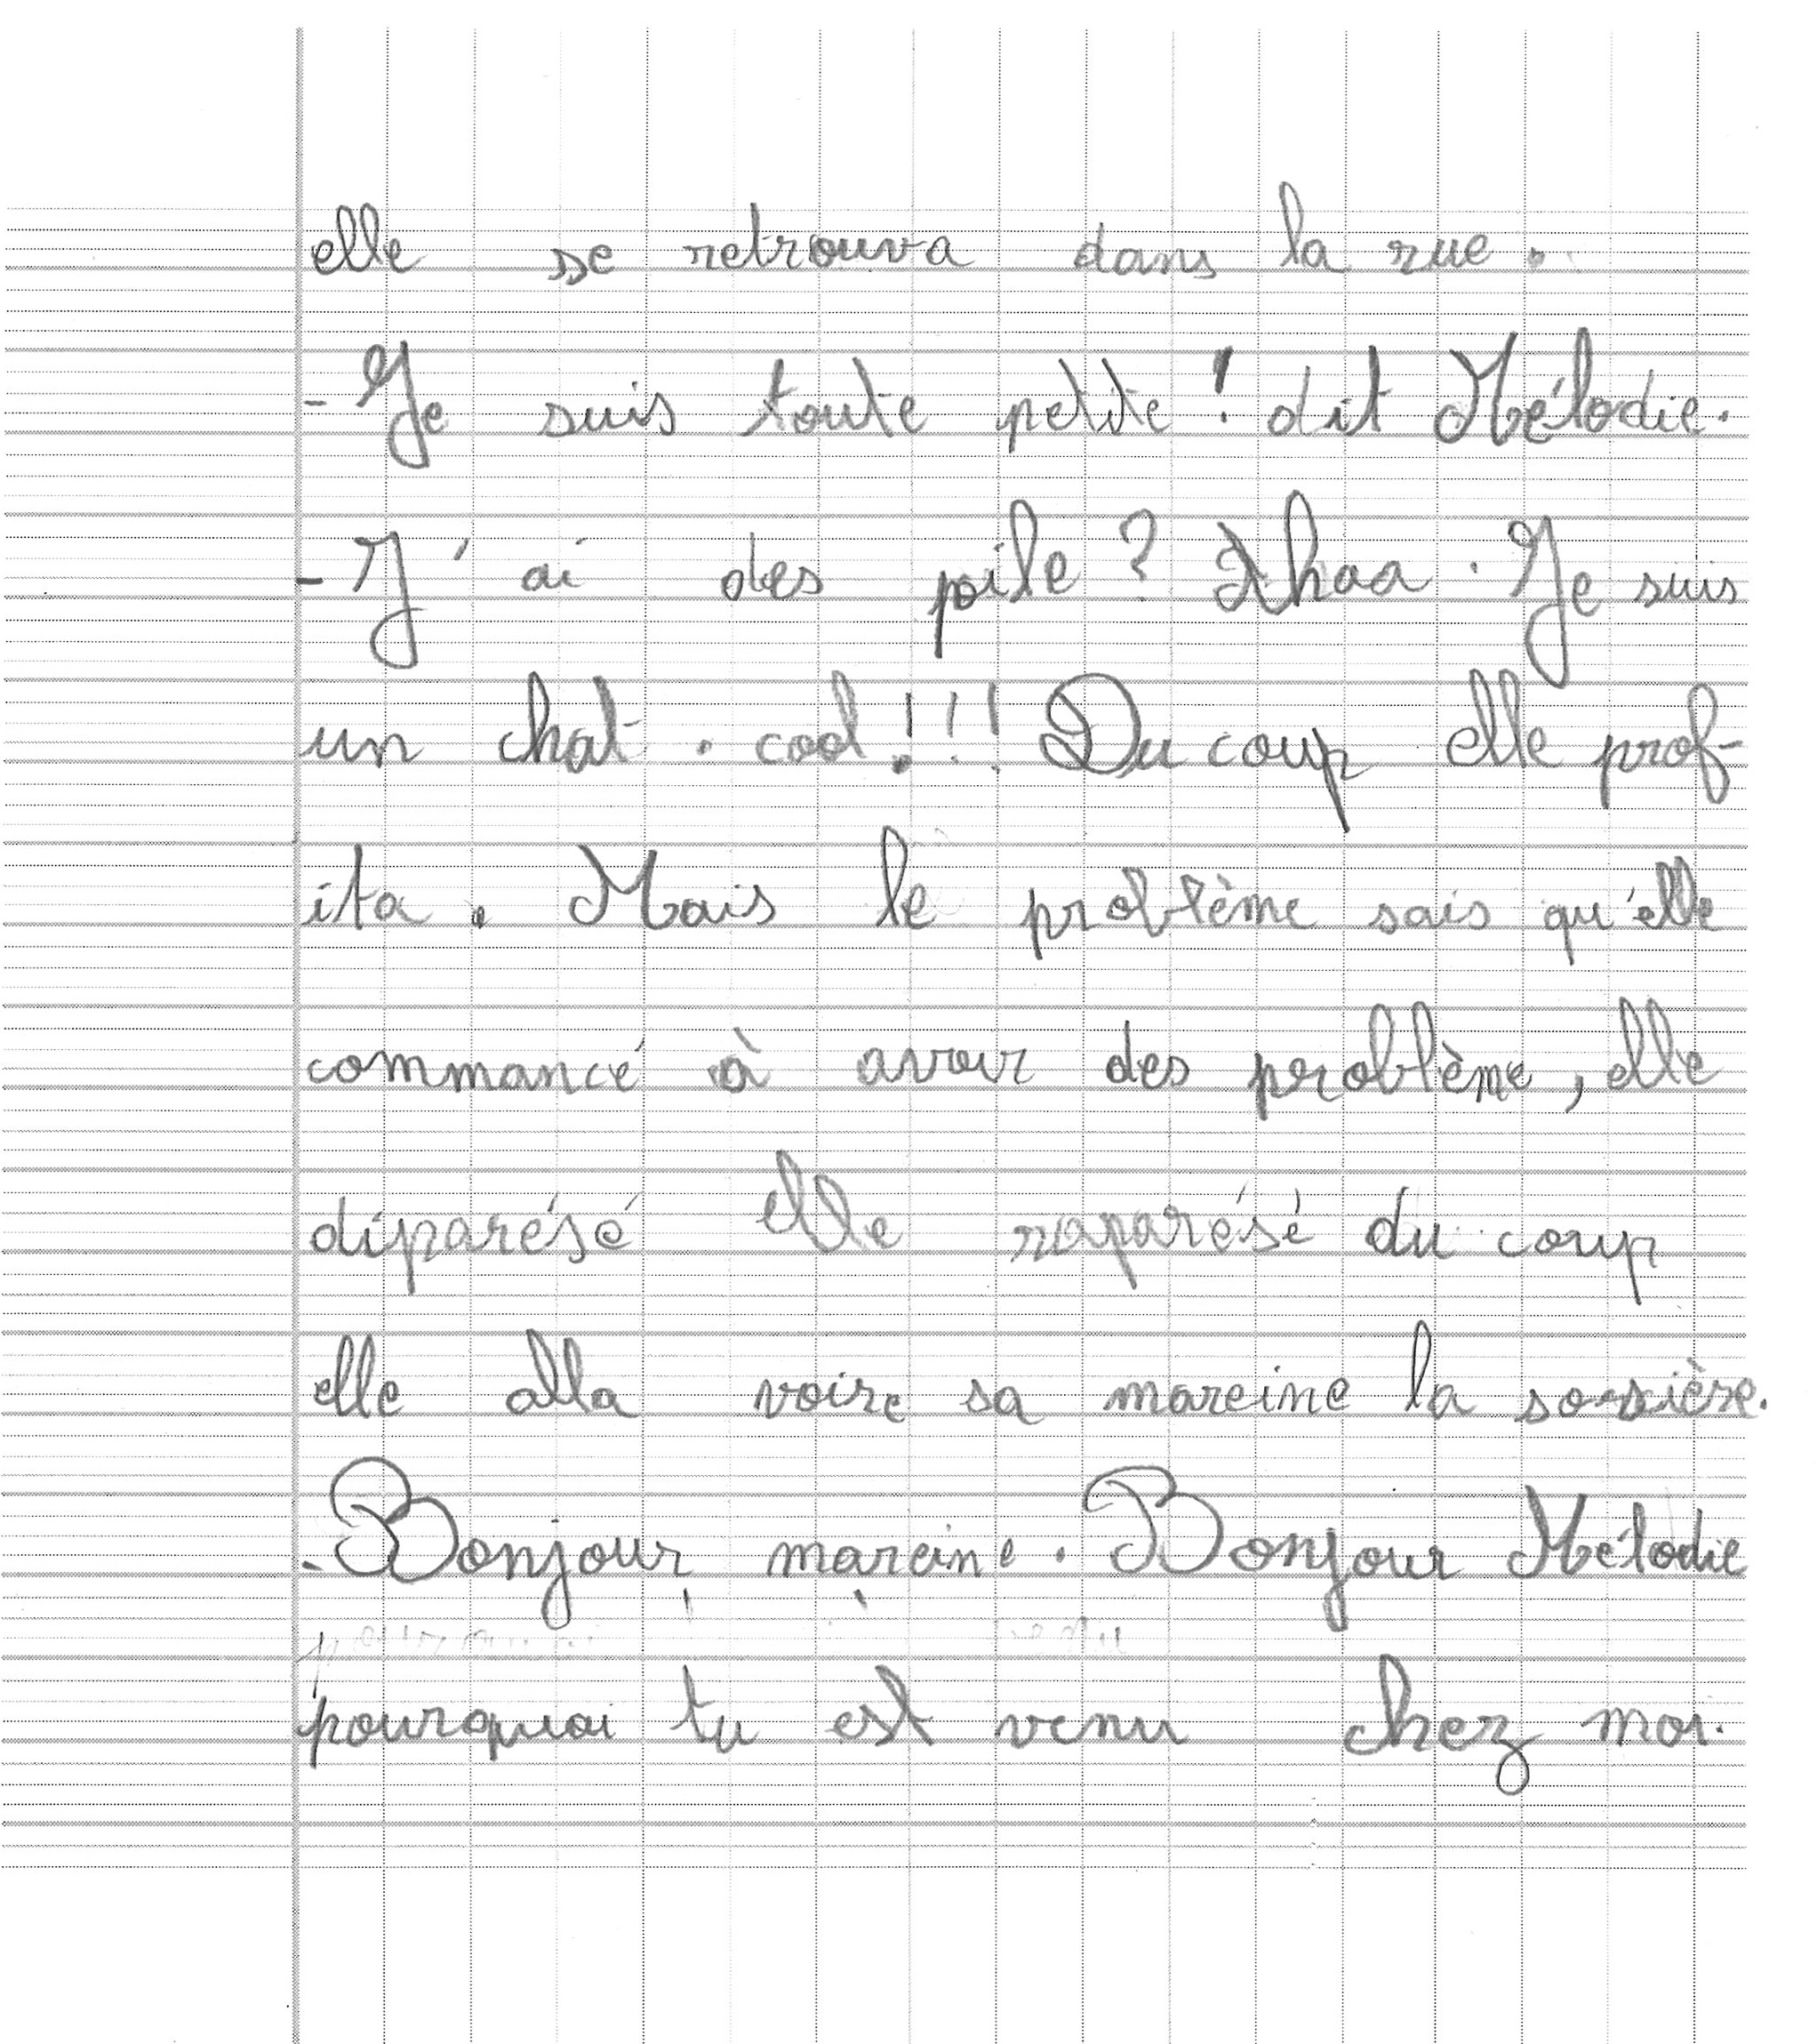 elle se retrouva dans la rue.
- Je suis toute petite ! dit Mélodie.
- J'ai des poile ? Ahaa. Je suis
un chat. cool !!! Du coup elle prof-
ita. Mais le problème sais qu'elle
commancé à avoir des problème, elle
diparésé elle raparésé du coup
elle alla voire sa mareine la sorsière.
- Bonjour mareine. Bonjour Mélodie
pourquoi tu est venu chez moi.